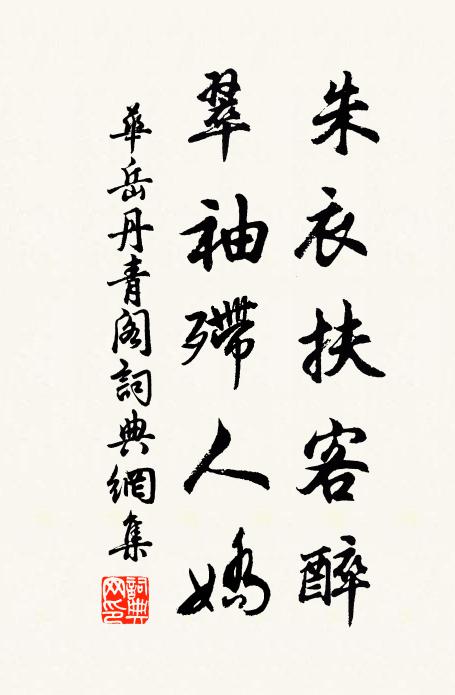 朱衣扶客醉
翠袖殢人嬌
華岳丹青閣詞典網集
詞典網印